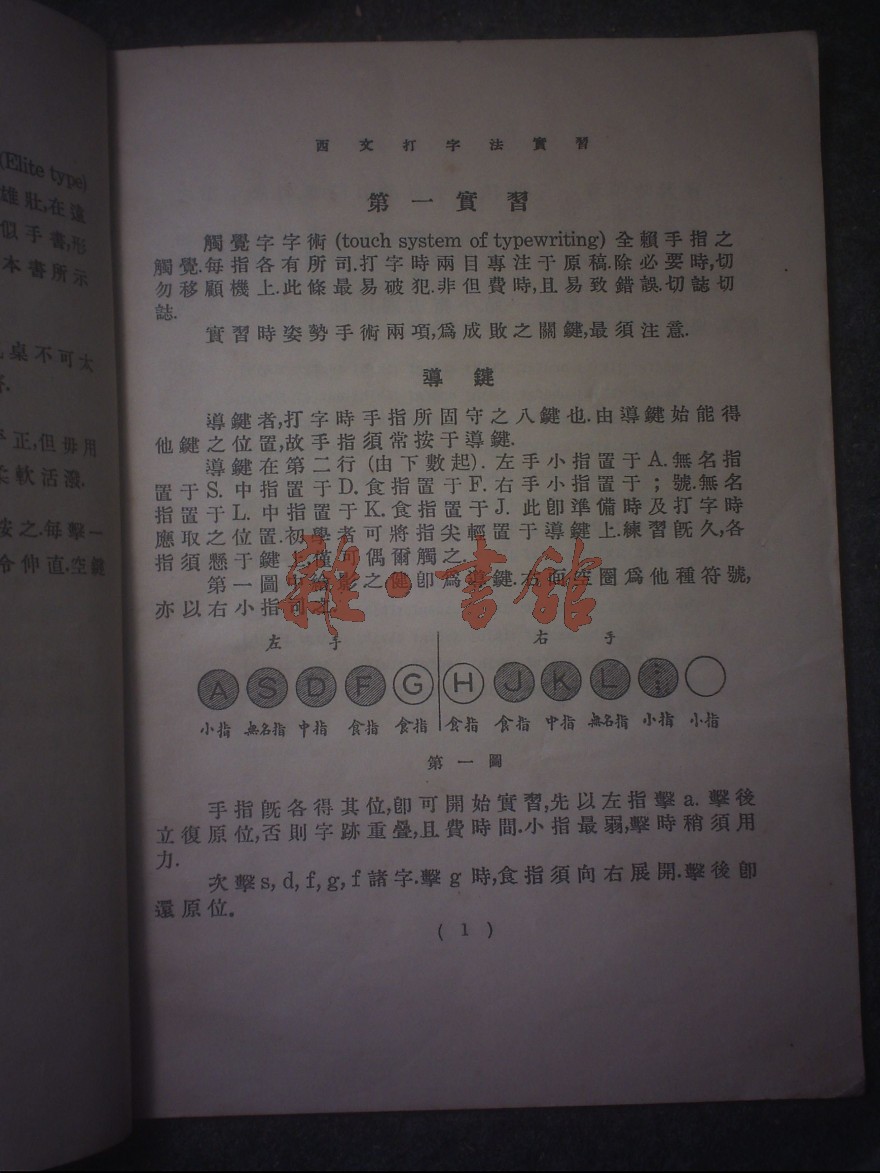 (Elite type)
雄壯,在遠
似手書,形
本書所示
桌不可太
正,但毋用
柔軟活潑.
按之.每擊一
令伸直.空鍵
西文打字法實習
第一實習
觸覺字字術 (touch system of typewriting) 全賴手指之
觸覺.每指各有所司.打字時兩目專注于原稿.除必要時,切
勿移顧機上.此條最易破犯.非但費時,且易致錯誤.切誌切
誌.
實習時姿勢手術兩項,爲成敗之關鍵,最須注意.
導鍵
導鍵者,打字時手指所固守之八鍵也.由導鍵始能得
他鍵之位置,故手指須常按于導鍵.
導鍵在第二行 (由下數起). 左手小指置于A.無名指
置于S. 中指置于D. 食指置于F. 右手小指置于 ; 號.無名
指置于L. 中指置于K. 食指置于J. 此卽準備時及打字時
應取之位置.初學者可將指尖輕置于導鍵上.練習旣久,各
指須懸于鍵上,僅可偶爾觸之.
第一圖中 影之鍵卽爲導鍵.右面空圈爲他種符號,
亦以右小指
雜·書館
左手 右手
A S D F G H J K L ;
小指 無名指 中指 食指 食指 食指 食指 中指 無名指 小指 小指
第一圖
手指旣各得其位,卽可開始實習,先以左指擊a. 擊後
立復原位,否則字跡重疊,且費時間.小指最弱,擊時稍須用
力.
次擊s, d, f, g, f 諸字.擊g時,食指須向右展開.擊後卽
還原位。
( 1 )